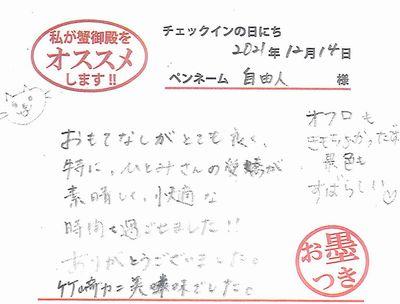 私が蟹御殿を
オススメ
します!!
チェックインの日にち
2021年12月14日
ペンネーム 自由人 様
おもてなしがとても良く、
特に、ひとみさんの愛嬌が
素晴しく、快適な
時間を過ごせました!!
ありがとうございました。
竹崎カニ美味でした。
オフロも
きもちよかったです
景色も
すばらしい♡
お墨
つき